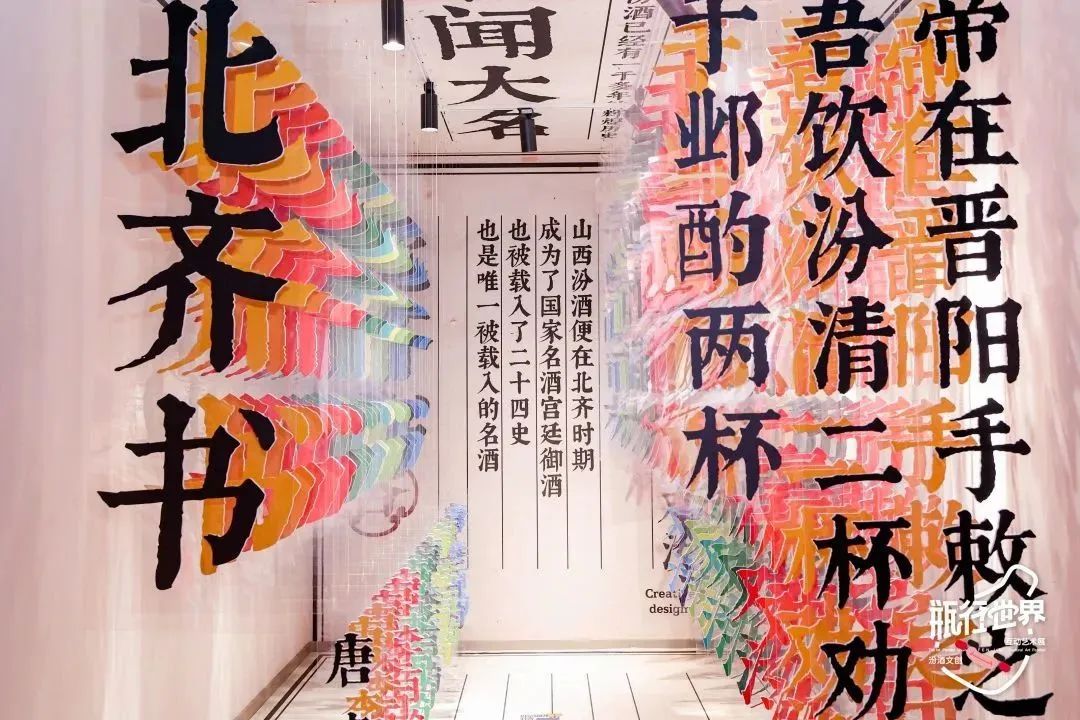 帝在晋阳手敕之
吾饮汾清二杯劝
于邺酌两杯
汾酒已经有一千多年
闻大名
山西汾酒便在北齐时期
成为了国家名酒宫廷御酒
也被载入了二十四史
也是唯一被载入的名酒
北齐书
唐
design
瓶行世界
互动艺术展
汾酒文创